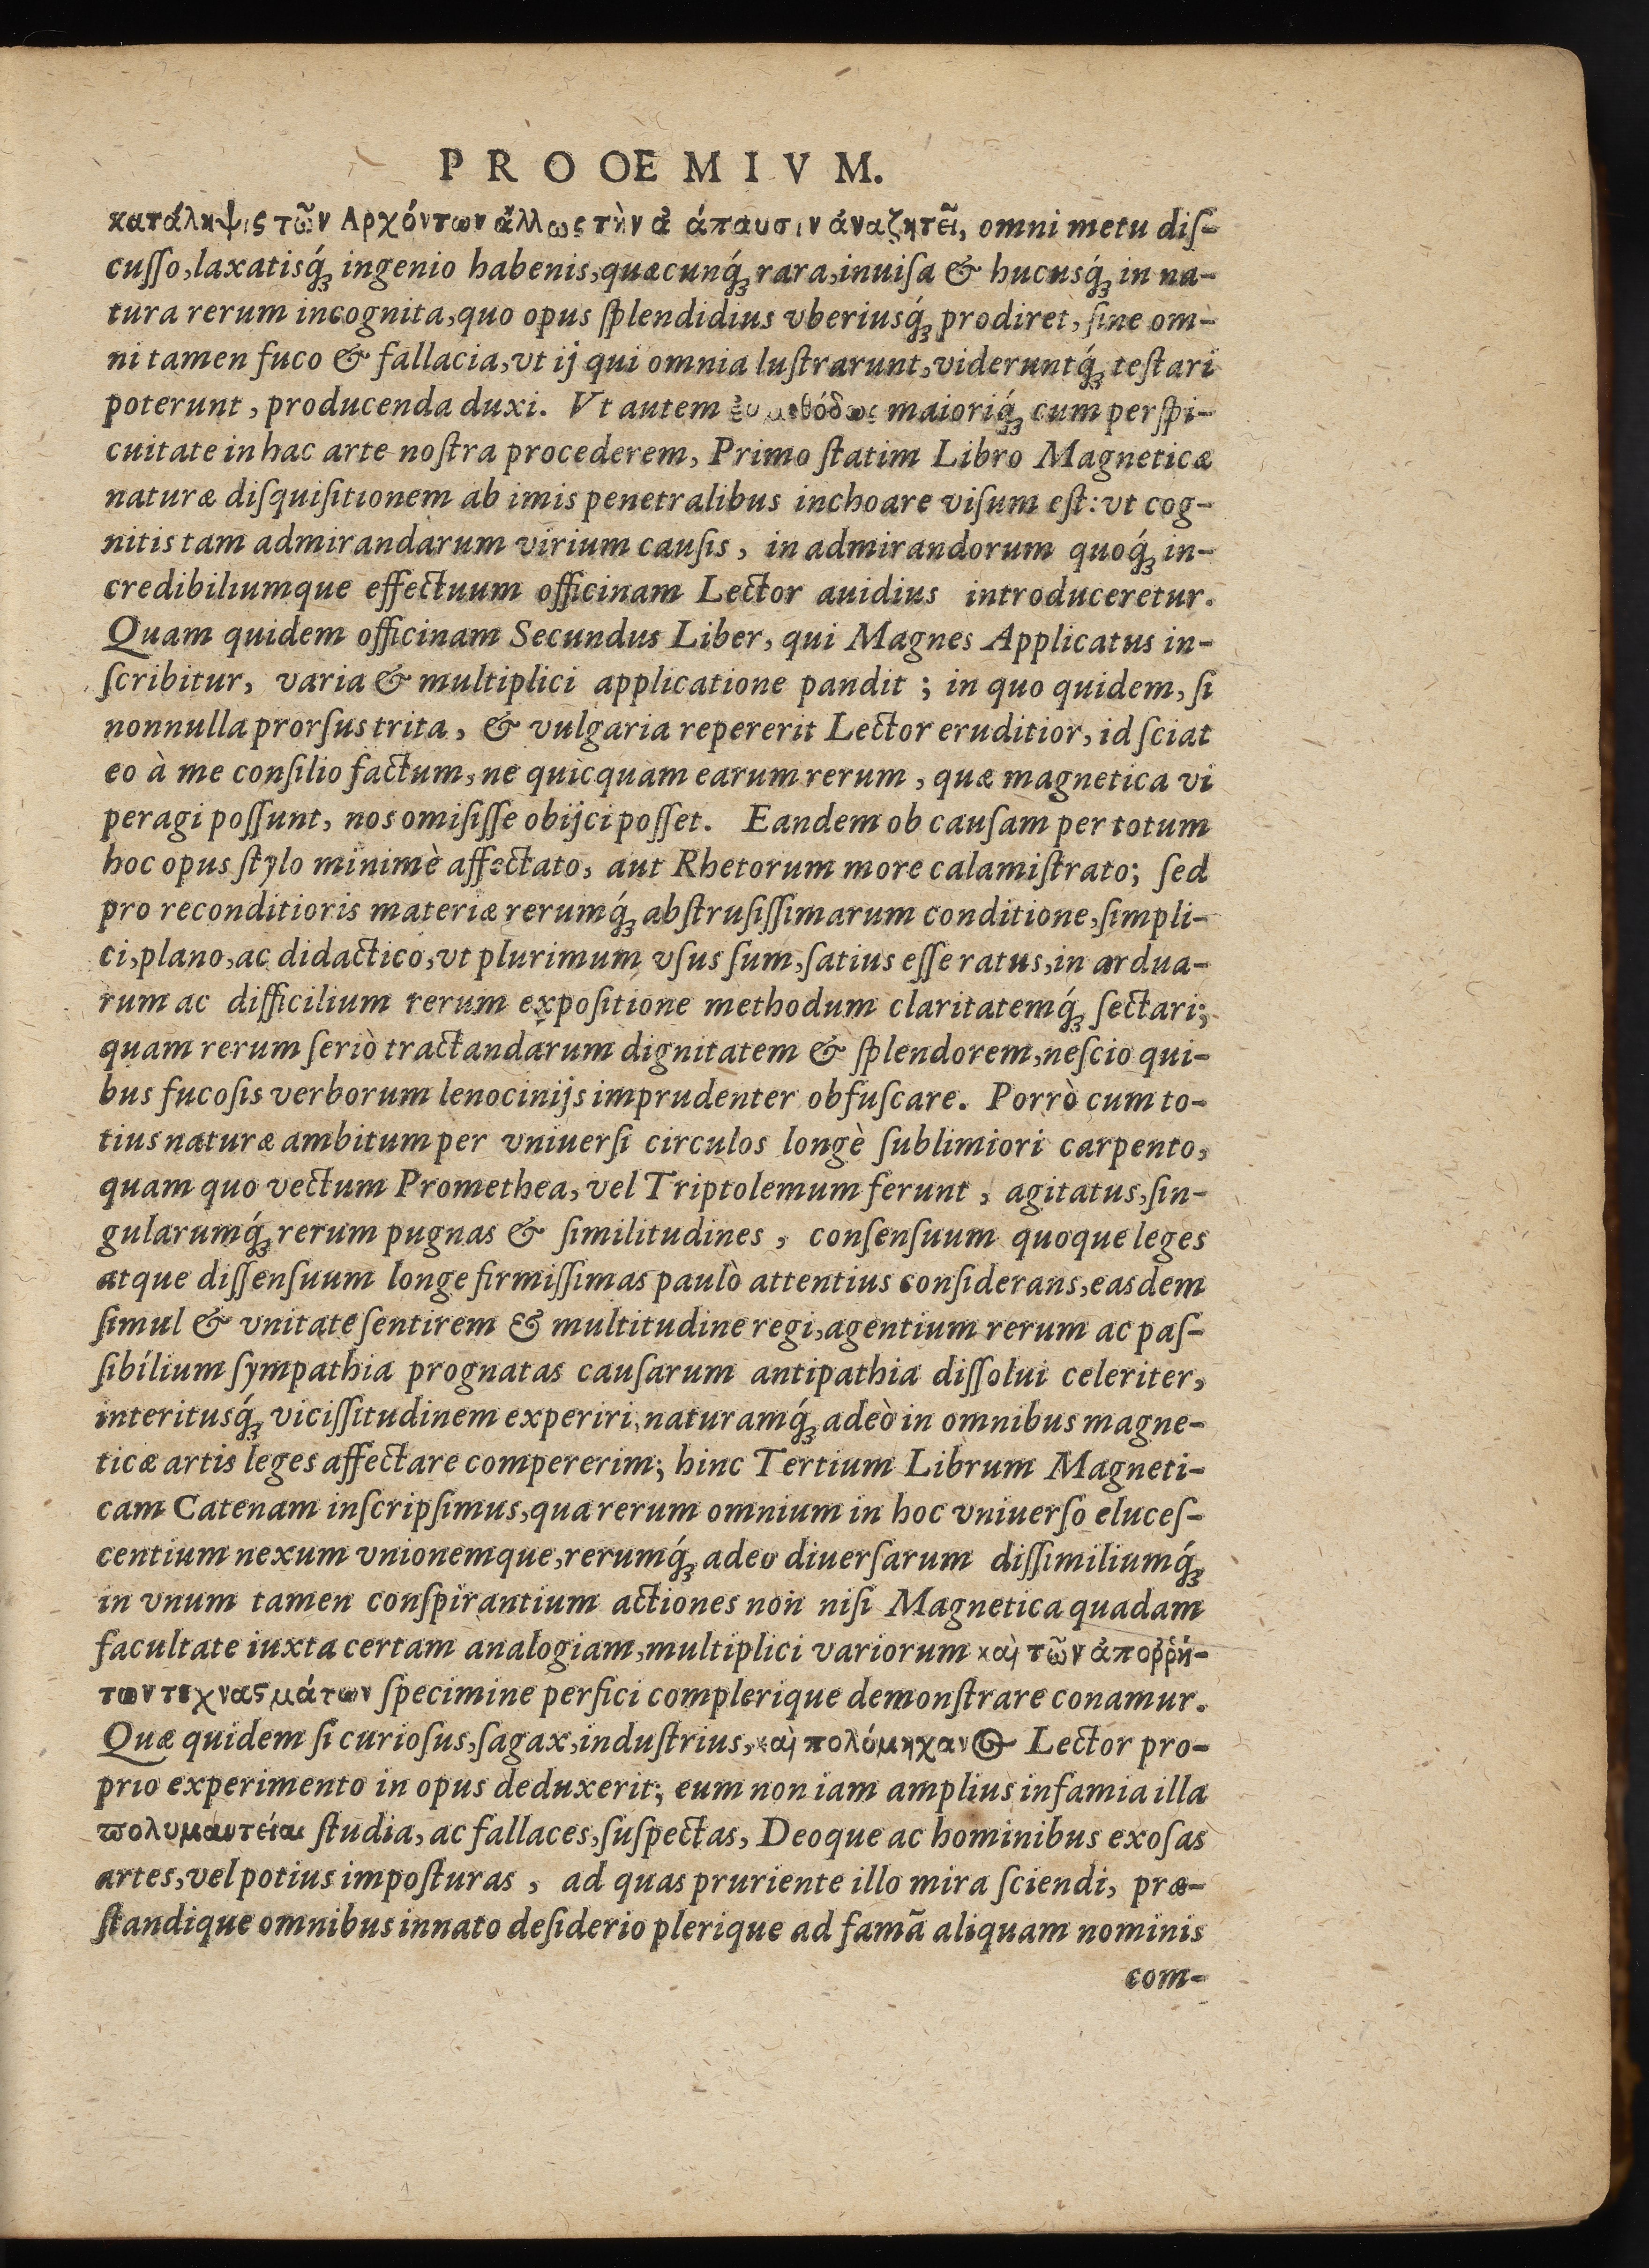 PROOEMIVM.
κατάληψις τῶν Αρχόντων ἄλλως τὴν ἀ άπαυσιν ἀναζητεῖ, omni metu diſ-
cuſſo, laxatisq́ꝫ ingenio habenis, quæcunq́ꝫ rara, inuiſa & hucusq́ꝫ in na-
tura rerum incognita, quo opus ſplendidius vberiusq́ꝫ prodiret, ſine om-
ni tamen fuco & fallacia, vt ij qui omnia luſtrarunt, videruntq́ꝫ teſtari
poterunt, producenda duxi. Vt autem maioriq́ꝫ cum perſpi-
cuitate in hac arte noſtra procederem, Primo ſtatim Libro Magneticæ
naturæ diſquiſitionem ab imis penetralibus inchoare viſum eſt: vt cog-
nitis tam admirandarum virium cauſis, in admirandorum quoq́ꝫ in-
credibiliumque effectuum officinam Lector auidius introduceretur.
Quam quidem officinam Secundus Liber, qui Magnes Applicatus in-
ſcribitur, varia & multiplici applicatione pandit; in quo quidem, ſi
nonnulla prorſus trita, & vulgaria repererit Lector eruditior, id ſciat
eo à me conſilio factum, ne quicquam earum rerum, quæ magnetica vi
peragi poſſunt, nos omiſiſſe obijci poſſet. Eandem ob cauſam per totum
hoc opus ſtylo minimè affectato, aut Rhetorum more calamiſtrato; ſed
pro reconditioris materiæ rerumq́ꝫ abſtruſiſſimarum conditione, ſimpli-
ci, plano, ac didactico, vt plurimum vſus ſum, ſatius eſſe ratus, in ardua-
rum ac difficilium rerum expoſitione methodum claritatemq́ꝫ ſectari;
quam rerum ſeriò tractandarum dignitatem & ſplendorem, neſcio qui-
bus fucoſis verborum lenocinijs imprudenter obfuſcare. Porrò cum to-
tius naturæ ambitum per vniuerſi circulos longè ſublimiori carpento,
quam quo vectum Promethea, vel Triptolemum ferunt, agitatus, ſin-
gularumq́ꝫ rerum pugnas & ſimilitudines, conſenſuum quoque leges
atque diſſenſuum longe firmiſſimas paulò attentius conſiderans, easdem
ſimul & vnitate ſentirem & multitudine regi, agentium rerum ac paſ-
ſibilium ſympathia prognatas cauſarum antipathia diſſolui celeriter,
interitusq́ꝫ viciſſitudinem experiri, naturamq́ꝫ adeò in omnibus magne-
ticæ artis leges affectare compererim; hinc Tertium Librum Magneti-
cam Catenam inſcripſimus, qua rerum omnium in hoc vniuerſo eluceſ-
centium nexum vnionemque, rerumq́ꝫ adeo diuerſarum diſſimiliumq́ꝫ
in vnum tamen conſpirantium actiones non niſi Magnetica quadam
facultate iuxta certam analogiam, multiplici variorum καὶ τῶν ἀποῤῥή-
των τεχναςμάτων ſpecimine perfici complerique demonſtrare conamur.
Quæ quidem ſi curioſus, ſagax, induſtrius, καὶ πολύμηχανος Lector pro-
prio experimento in opus deduxerit; eum non iam amplius infamia illa
πολυμαντείαι ſtudia, ac fallaces, ſuſpectas, Deoque ac hominibus exoſas
artes, vel potius impoſturas, ad quas pruriente illo mira ſciendi, præ-
ſtandique omnibus innato deſiderio plerique ad famã aliquam nominis
com-